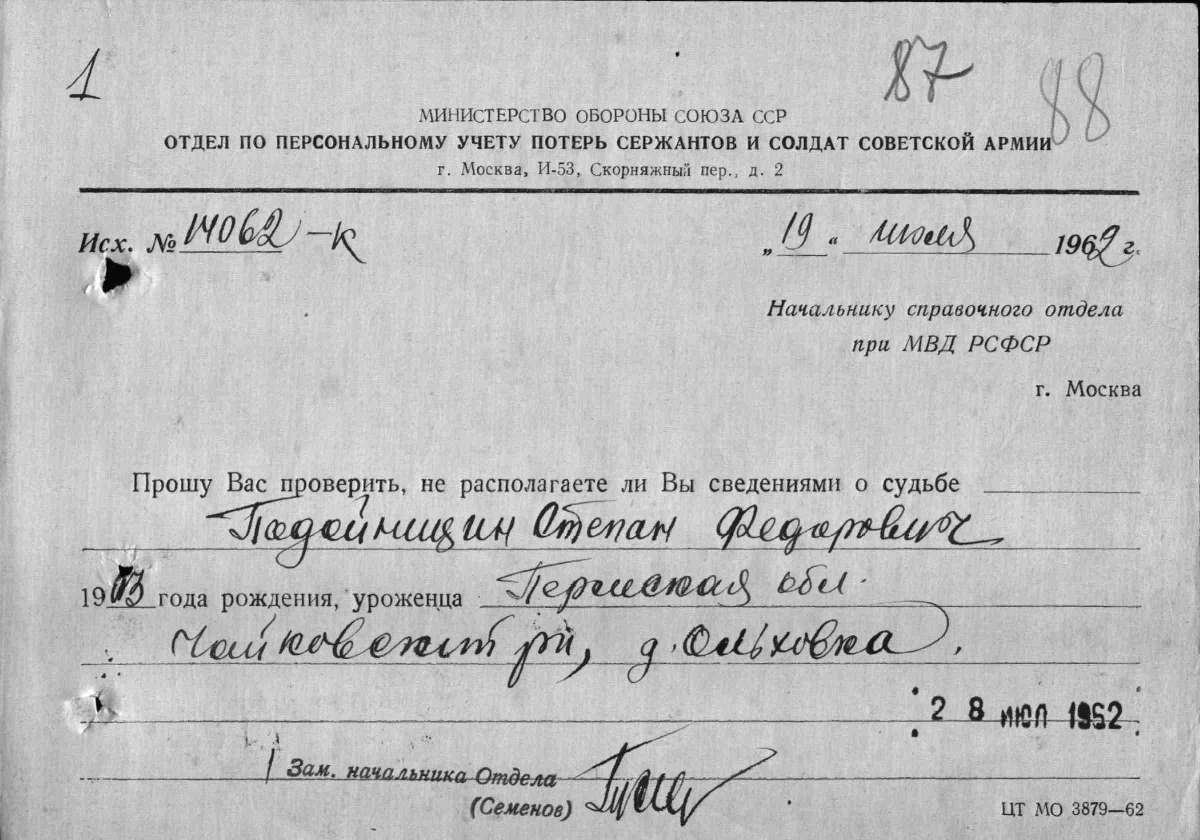 1
87
88
МИНИСТЕРСТВО ОБОРОНЫ СОЮЗА ССР
ОТДЕЛ ПО ПЕРСОНАЛЬНОМУ УЧЕТУ ПОТЕРЬ СЕРЖАНТОВ И СОЛДАТ СОВЕТСКОЙ АРМИИ
г. Москва, И-53, Скорняжный пер., д. 2
Исх. № 14062-к „19“ июля 1962 г.
Начальнику справочного отдела
при МВД РСФСР
г. Москва
Прошу Вас проверить, не располагаете ли Вы сведениями о судьбе
Подойницин Степан Федорович
19 года рождения, уроженца Пермская обл.
Чайковский рн, д. Ольховка.
28 ИЮЛ 1962
Зам. начальника Отдела
(Семенов)
ЦТ МО 3879—62